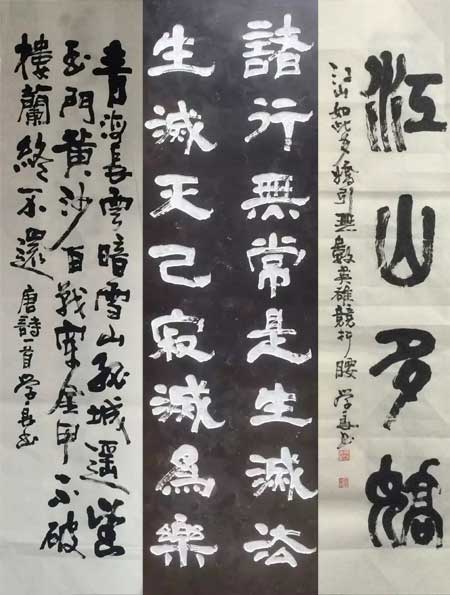 江山多嬌
江山如此多嬌引無數英雄競折腰 学书
諸行無常是生滅法
生滅天己寂滅為樂
青海長雲暗雪山孤城遥望
玉門黄沙百戰穿金甲不破
樓蘭終不還 唐詩一首 学书